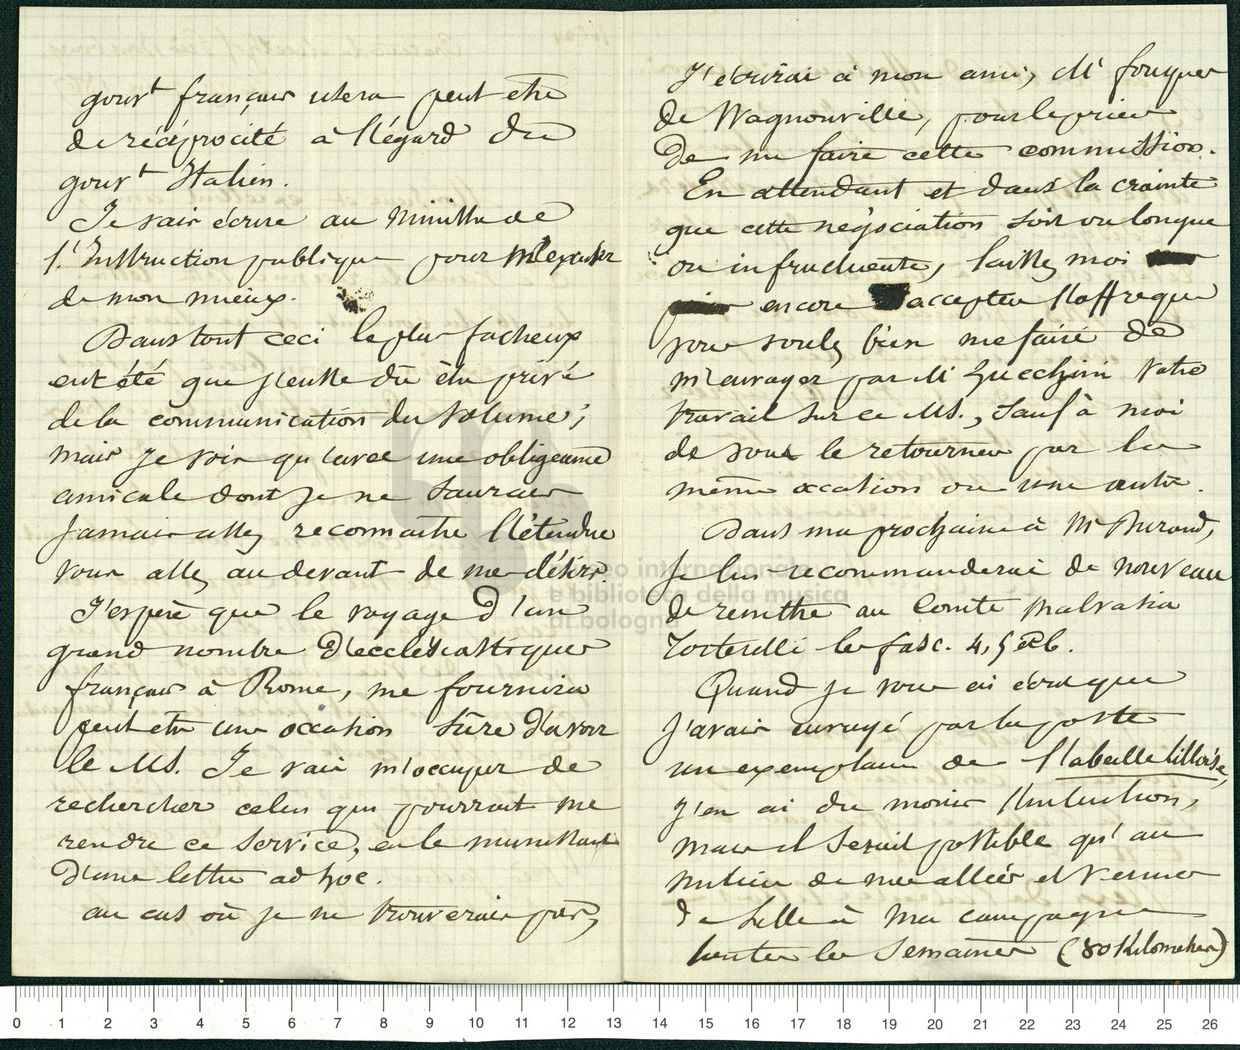 gouvt français usera peut être
de réciprocité à l'égard du
gouvt Italien.
Je vais écrire au Ministre de
l'Instruction publique pour m'excuser
de mon mieux.
Dans tout ceci le plus facheux
eut été que j'eusse dû être privé
de la communication du volume;
mais je vois qu'avec une obligeance
amicale dont je ne saurais
jamais assez reconnaitre l'étendue
vous allez au devant de mes désirs.
J'espère que le voyage d'un
grand nombre d'ecclésiastiques
français à Rome, me fournira
peut être une occasion sûre d'avoir
le MS. Je vais m'occuper de
rechercher celui qui pourrait me
rendre ce service, en le munissant
d'une lettre ad hoc.
au cas où je ne trouverais pas,
J'écrirai à mon ami, Mr fouques
de Wagnonville, pour le prier
de me faire cette commission.
En attendant et dans la crainte
que cette négociation soit ou longue
ou infructueuse, laissez moi
encore accepter l'offre que
vous voulez bien me faire de
m'envoyer par Mr Guecchini votre
travail sur ce MS., sauf à moi
de vous le retourner par la
même occasion ou une autre.
Dans ma prochaine à Mr Durand,
je lui recommanderai de nouveau
de remettre au Comte Malvasia
Tortorelli les fasc. 4, 5 et 6.
Quand je vous ai écrit que
j'avais envoyé par la poste
un exemplaire de l'abeille lilloise,
j'en ai du moins l'intention,
mais il serait possible qu'au
milieu de mes allées et venues
de Lille à ma campagne
toutes les semaines (80 Kilometres)
museo internazionale
e biblioteca della musica
di bologna
0 1 2 3 4 5 6 7 8 9 10 11 12 13 14 15 16 17 18 19 20 21 22 23 24 25 26